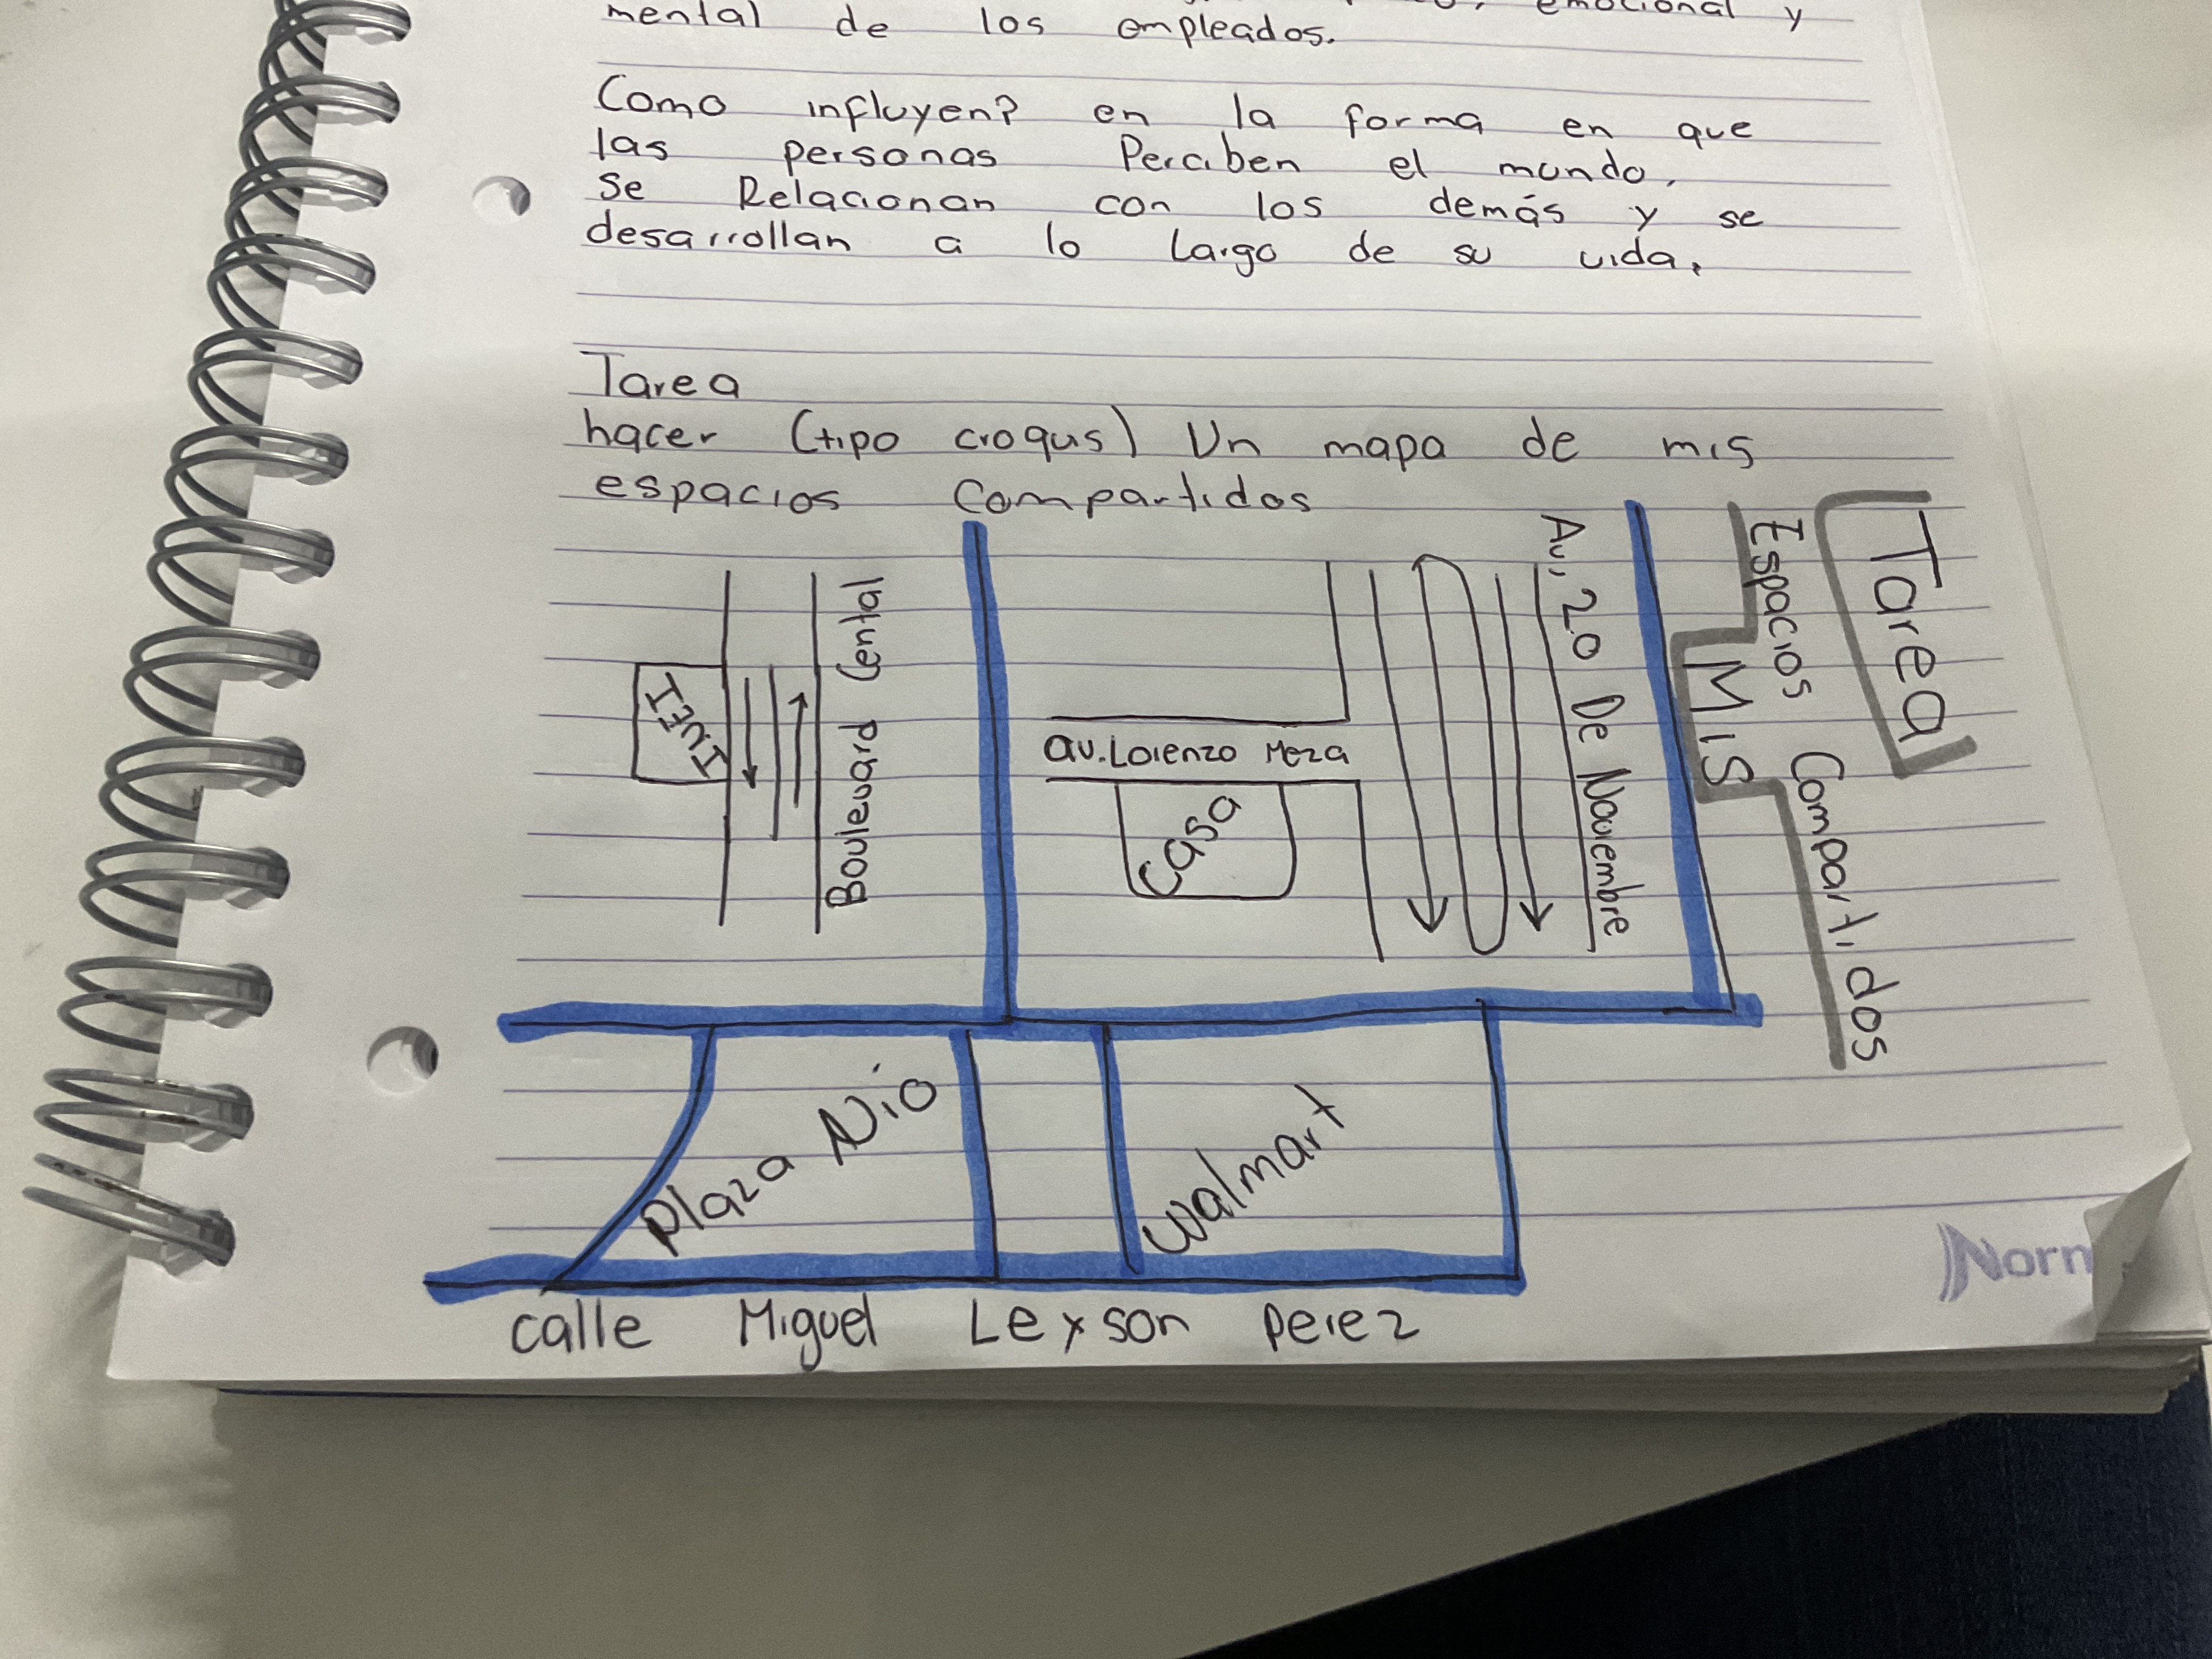 mental de los empleados.
emocional y
Como influyen? en la forma en que
las personas Perciben el mundo,
se Relacionan con los demás y se
desarrollan a lo largo de su vida,
Tarea
hacer (tipo croqus) Un mapa de mis
espacios Compartidos
Tarea
MIS
Espacios Compartidos
Av, 20 De Noviembre
av. Lorenzo Meza
Casa
Boulevard Cental
Plaza Nio
Walmart
calle Miguel Lexson Perez
Norm